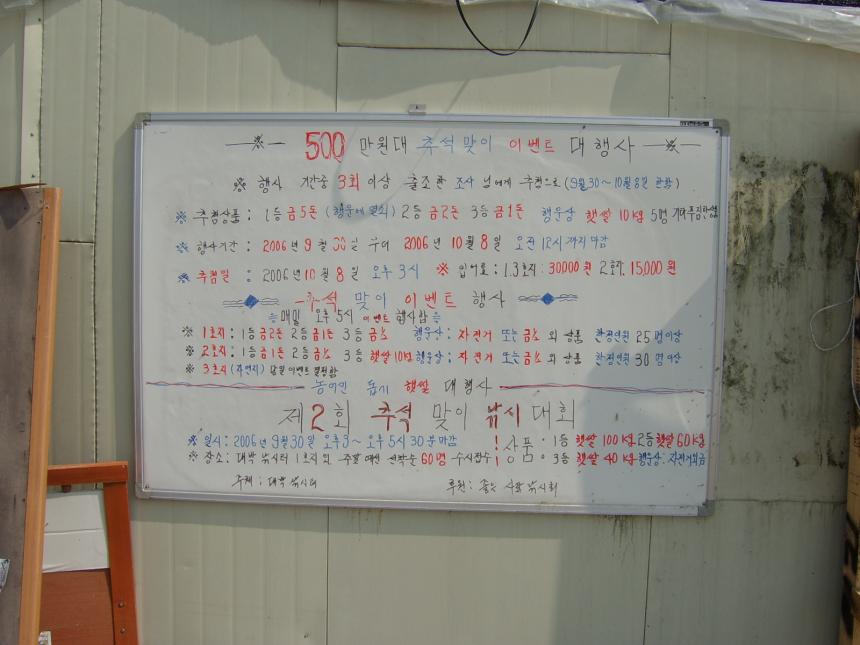 500 만원대 추석 맞이 이벤트 대행사
※ 행사 기간중 3회 이상 출조한 조사 님에게 추첨으로 (9월30~10월8일 한함)
※ 추첨상품 : 1등 금5돈 (행운에 열쇠) 2등 금2돈 3등 금1돈 행운상 햅쌀 10kg 5명
※ 행사기간 : 2006년 9월 30일 부터 2006년 10월 8일 오전 12시까지 마감
※ 추첨일 : 2006년 10월 8일 오후 3시 ※ 입어료 : 1.3호지 : 30000원 2호지 15,000원
추석 맞이 이벤트 행사
매일 오후 5시 이벤트 행사함
※ 1호지 : 1등 금2돈 2등 금1돈 3등 금 행운상 : 자전거 또는 외 상품 한정인원 25명이상
※ 2호지 : 1등 금1돈 2등 3등 햅쌀 10kg 행운상 : 자전거 또는 외 상품 한정인원 30명이상
※ 3호지 (자연지) 당일 이벤트 결정함
농어민 돕기 햅쌀 대행사
제2회 추석 맞이 낚시 대회
※ 일시 : 2006년 9월30일 오후3~ 오후 5시 30분 마감
※ 장소 : 대박 낚시터 1호지 선착순 60명 수시접수
상품 : 1등 햅쌀 100kg 2등 햅쌀 60kg
3등 햅쌀 40kg 행운상 : 자전거외
주최 : 대박 낚시터 후원 : 사람 낚시회